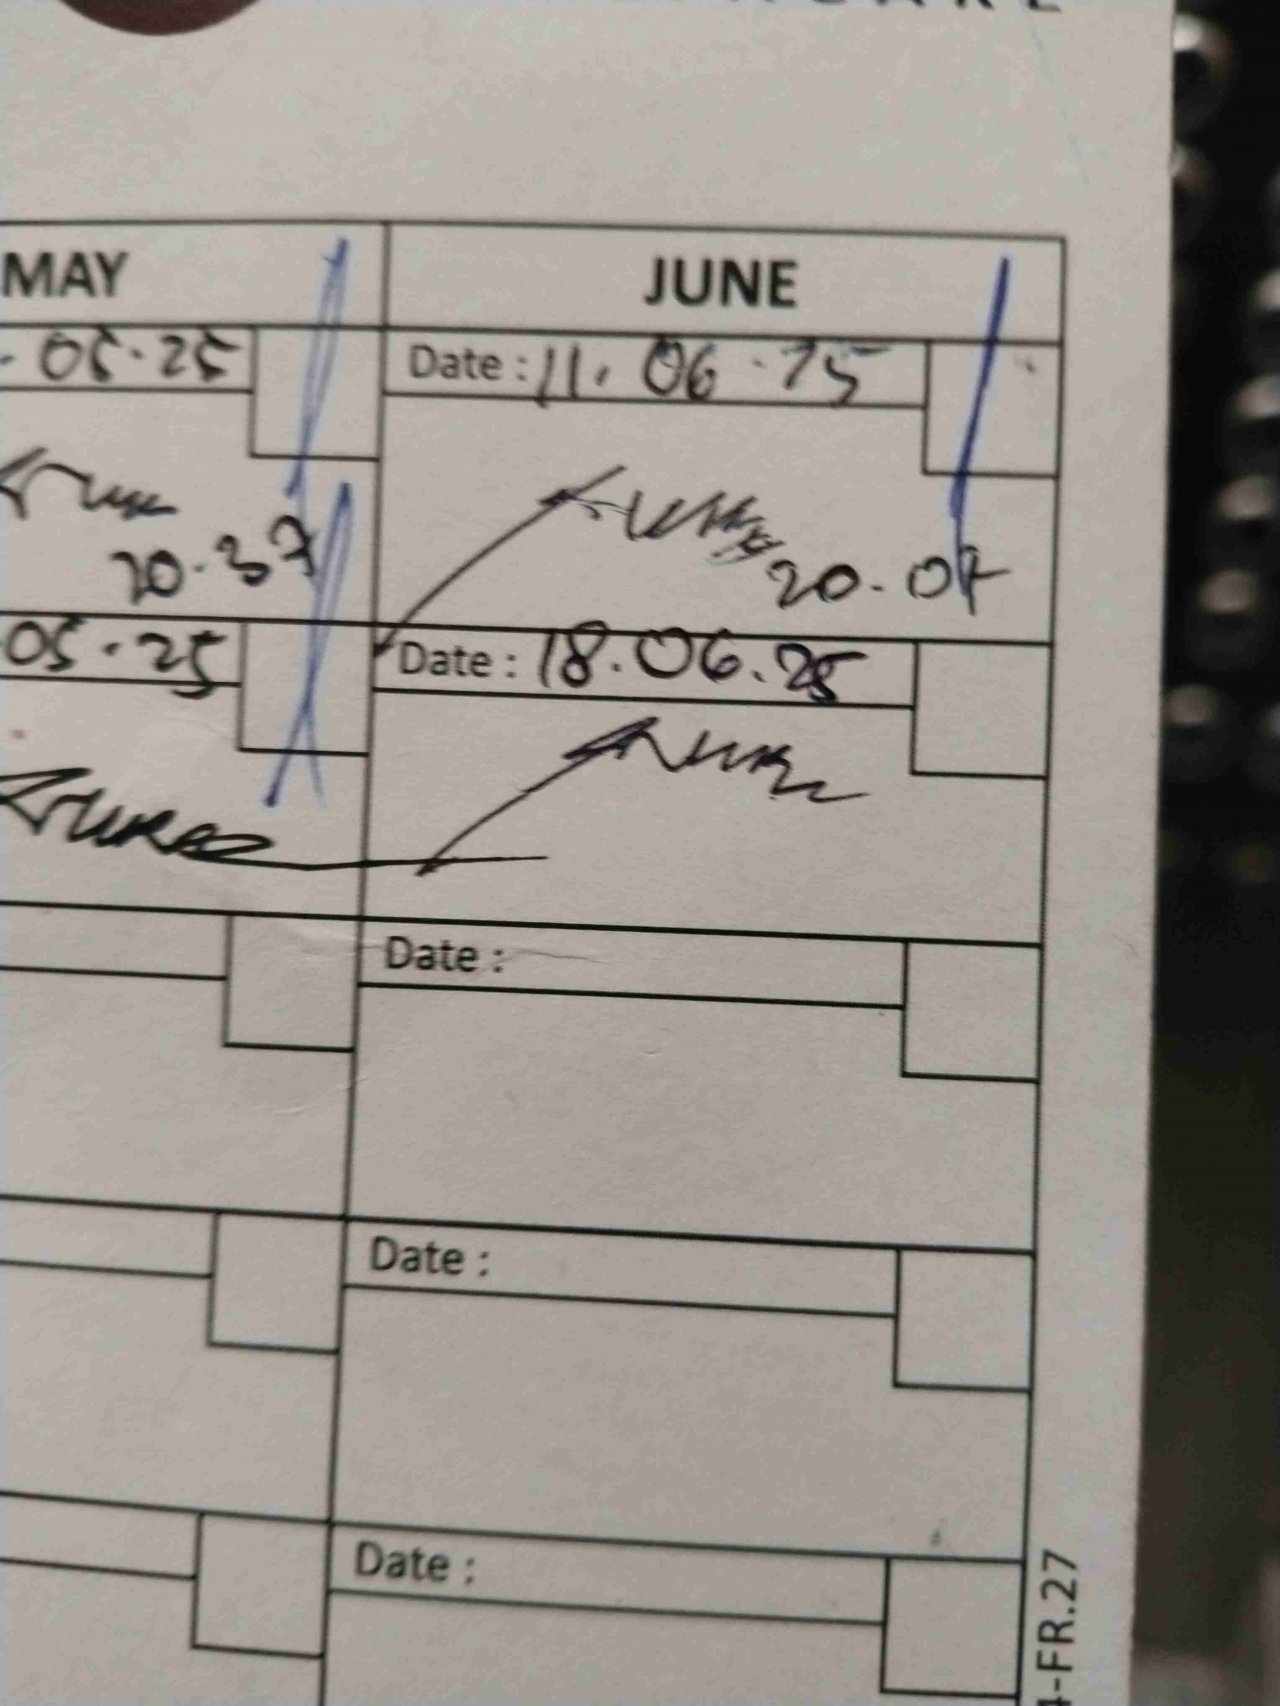 MAY
JUNE
05.25
Date : 11.06.25
20.37
20.07
05.25
Date : 18.06.25
Date :
Date :
Date :
-FR.27